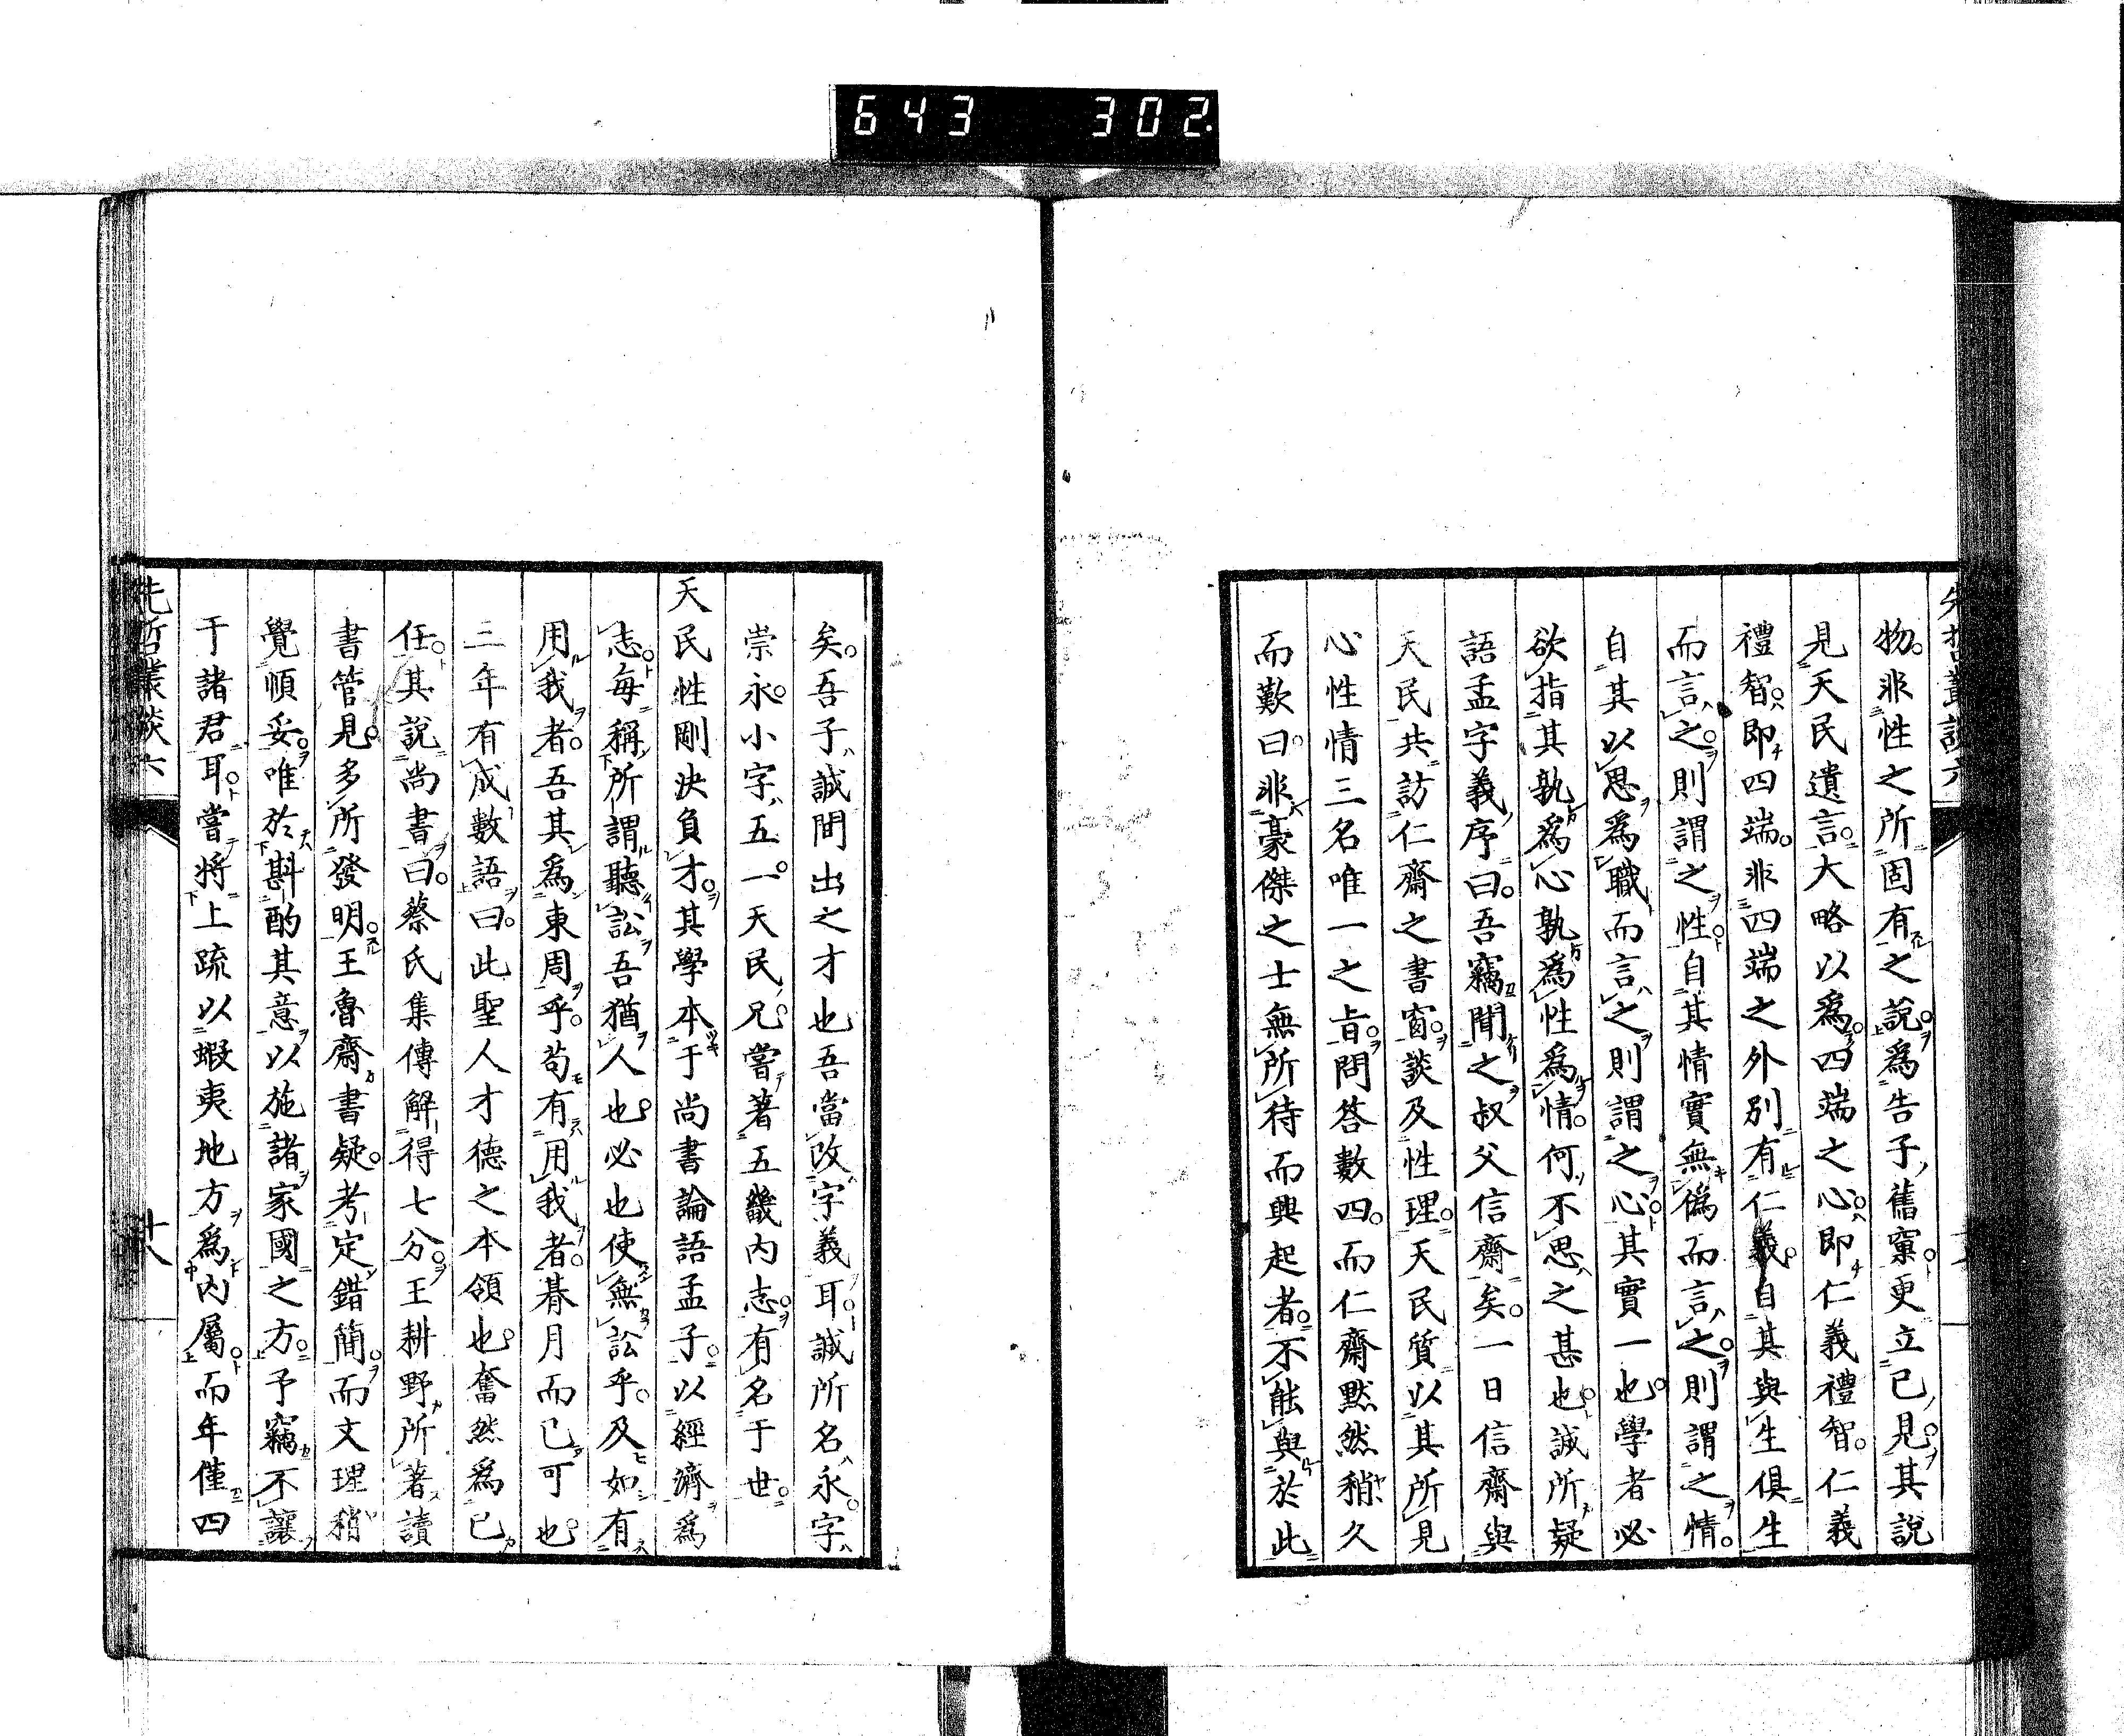 643 302.
物。非性之所固有之說。爲告子舊窠。更立已見。其說
見天民遺言。大略以爲。四端之心。即仁義禮智。仁義
禮智。即四端。非四端之外別有仁義。自其與生俱生
而言之。則謂之性。自其情實無僞而言之。則謂之情。
自其以思爲職而言之。則謂之心。其實一也。學者必
欲指其孰爲心孰爲性爲情。何不思之甚也。誠所疑
語孟字義序曰。吾竊聞之叔父信齋矣。一日信齋與
天民共訪仁齋之書窗。談及性理。天民質以其所見
心性情三名唯一之旨。問答數四。而仁齋默然稍久
而歎曰。非豪傑之士無所待而興起者。不能與於此
矣。吾子誠間出之才也吾當改字義耳。誠所名永。字
崇永。小字五一。天民兄嘗著五畿內志。有名于世。
天民性剛決負才。其學本于尚書論語孟子。以經濟爲
志。每稱所謂聽訟吾猶人也。必也使無訟乎。及如有
用我者。吾其爲東周乎。苟有用我者。朞月而已可也
三年有成數語曰。此聖人才德之本領也。奮然爲已
任。其說尚書曰。蔡氏集傳解得七分。王耕野所著讀
書管見。多所發明。王魯齋書疑。考定錯簡。而文理稍
覺順妥。唯於斟酌其意以施諸家國之方。予竊不讓
于諸君耳。嘗將上疏以蝦夷地方爲內屬。而年僅四
先哲叢談六
十八